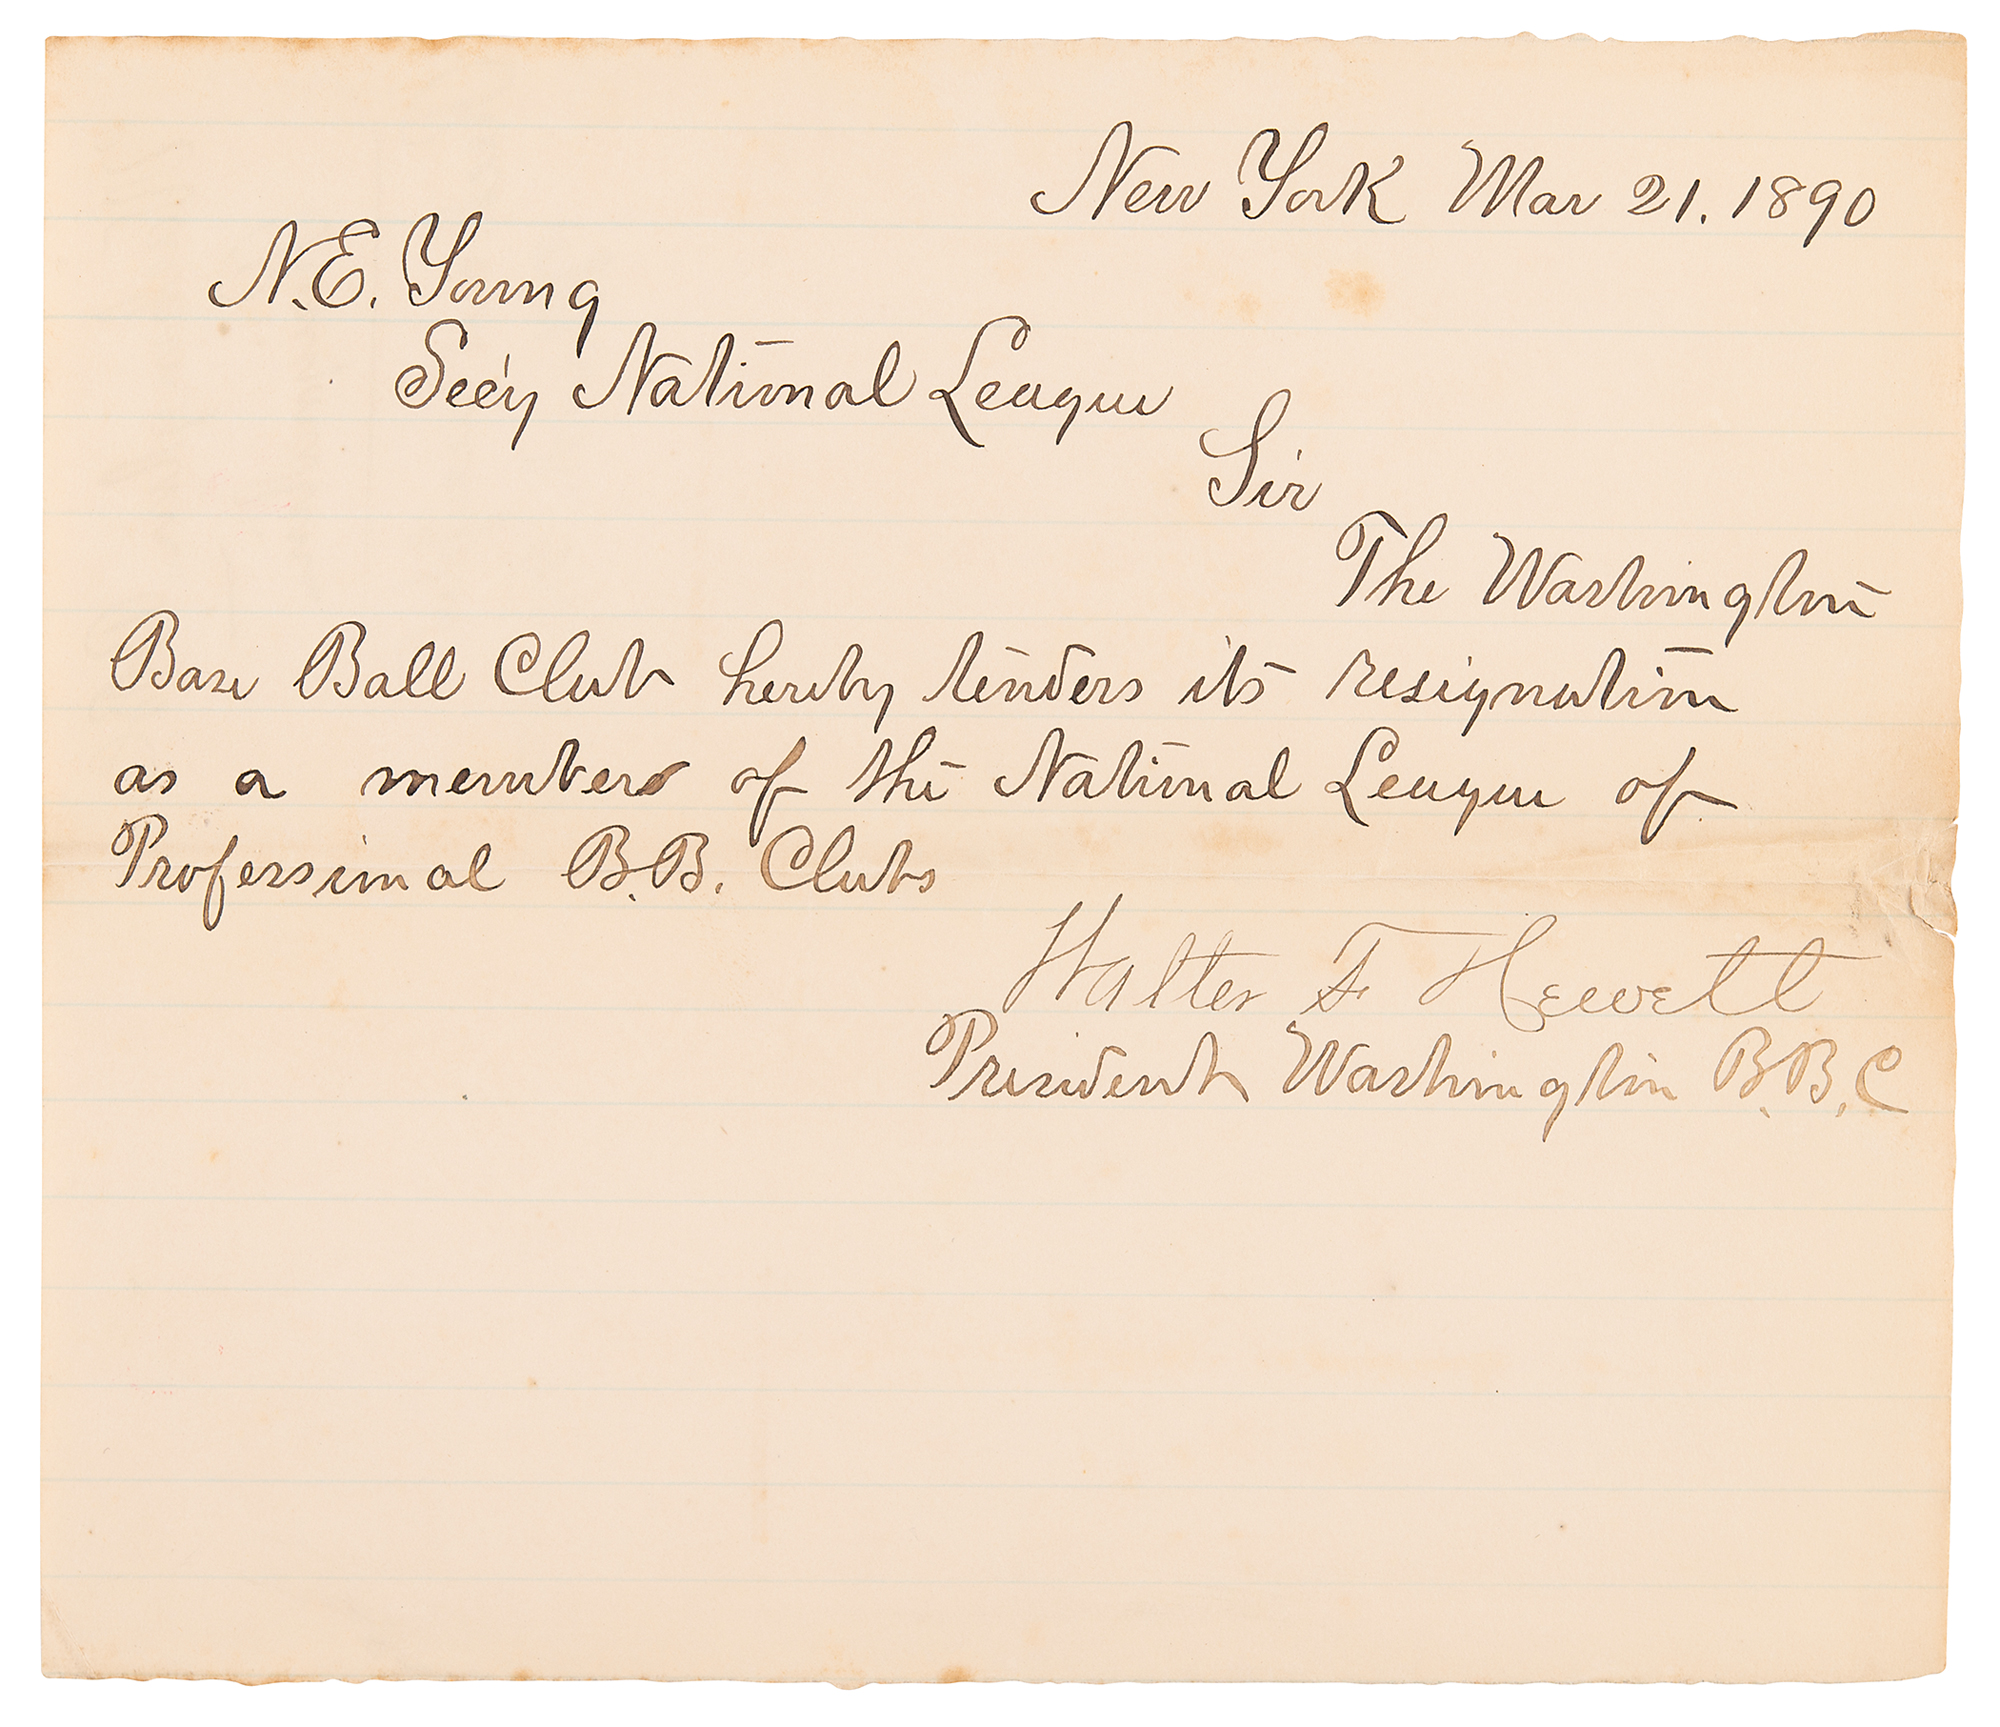 New York Mar 21. 1890
N.E. Young
Sec'y National League
Sir
The Washington
Base Ball Club hereby tenders its resignation
as a member of the National League of
Professional B.B. Clubs
Walter F Hewett
President Washington B.B.C